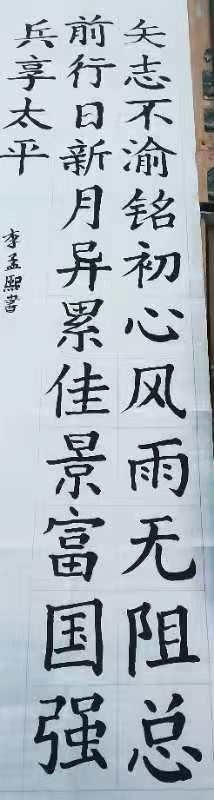 矢志不渝铭初心风雨无阻总
前行日新月异累佳景富国强
兵享太平
李孟熙書